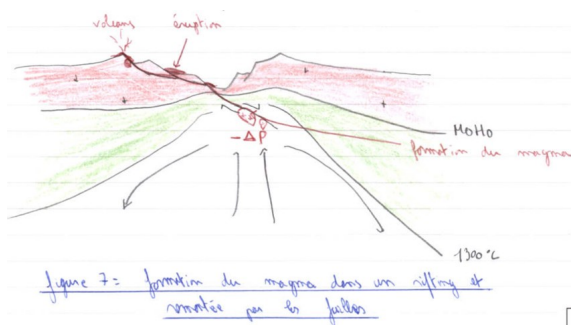 volcans éruption
MOHO
- Δ P
formation du magma
1300°C
figure 7 = formation du magma dans un rifting et
remontée par les failles